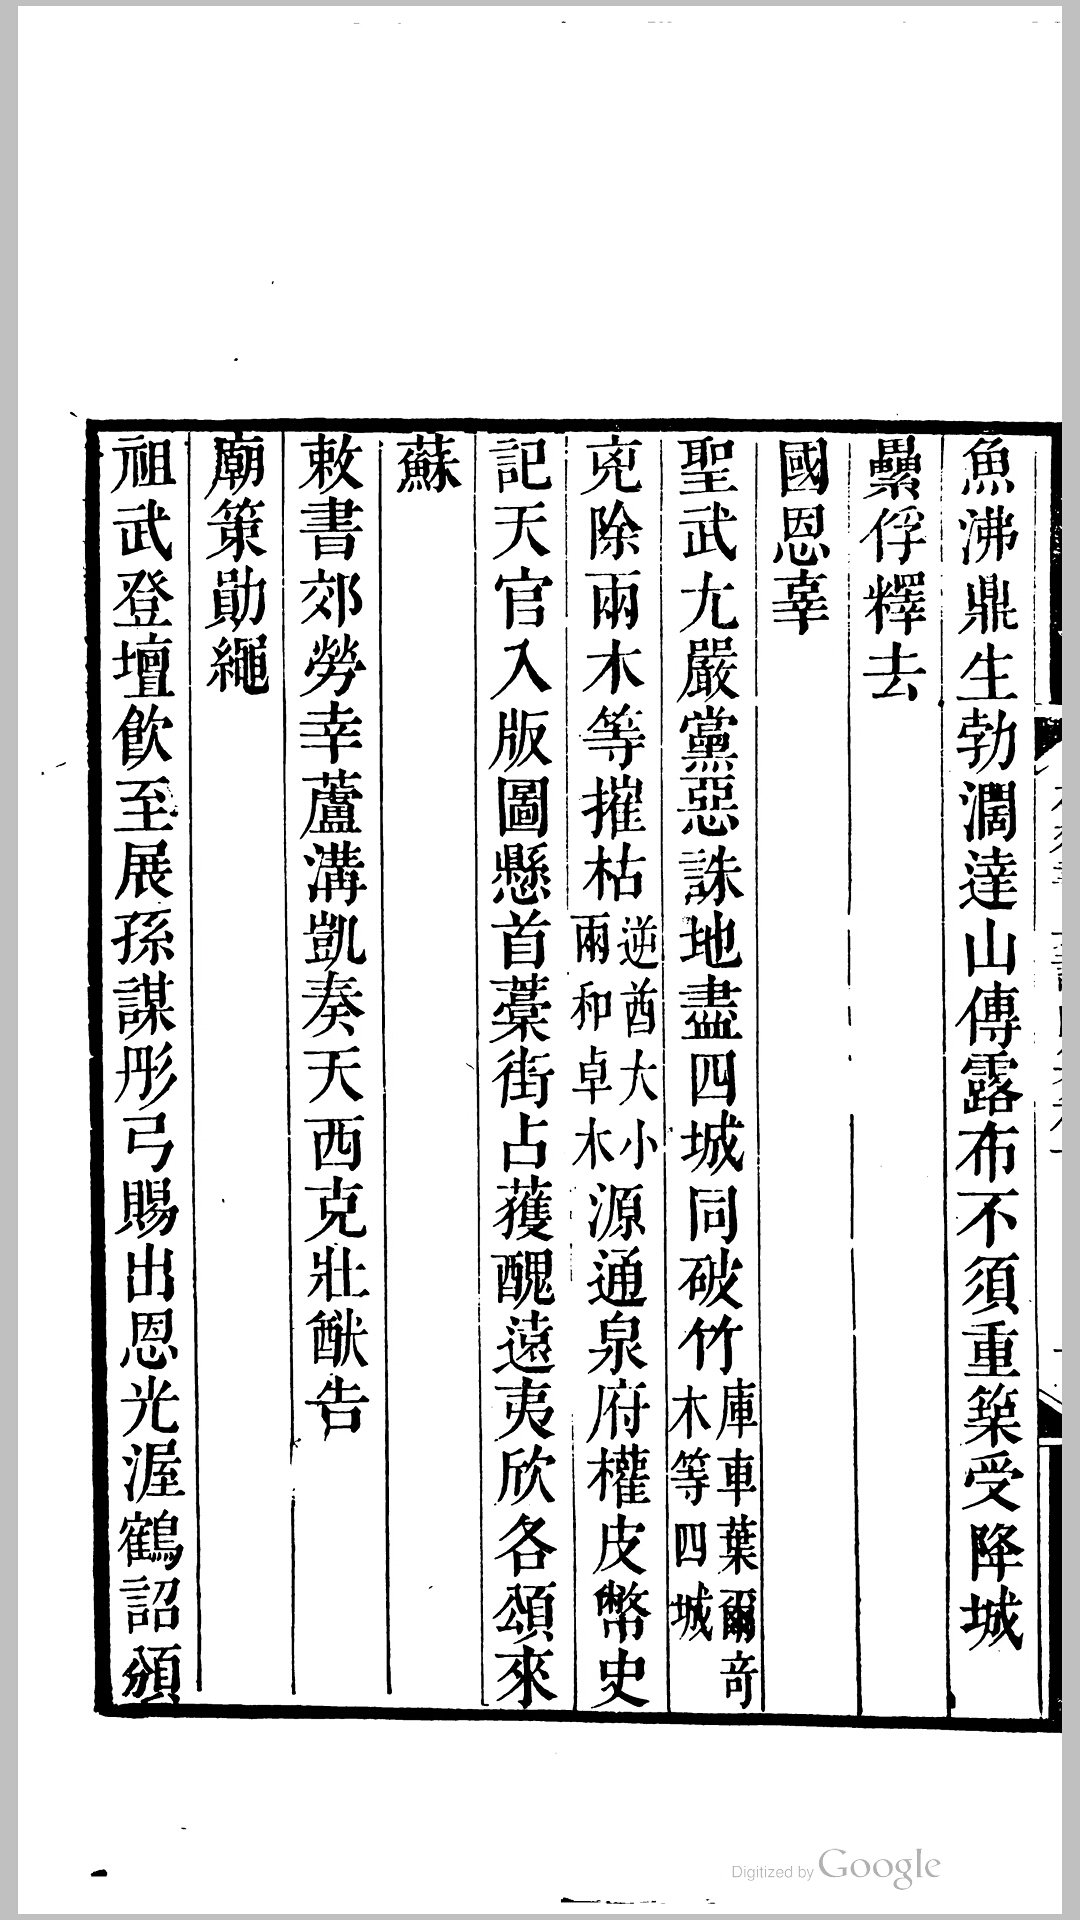 魚沸鼎生勃濶達山傳露布不須重築受降城
纍俘釋去
國恩辜
聖武尢嚴黨惡誅地盡四城同破竹庫車葉爾奇木等四城
兇除兩木等摧枯逆酋大小兩和卓木源通泉府權皮幣史
記天官入版圖懸首藁街占獲醜遠夷欣各頌來
蘇
敕書郊勞幸蘆溝凱奏天西克壯猷告
廟策勛繩
祖武登壇飲至展孫謀彤弓賜出恩光渥鶴詔頒
Digitized by Google